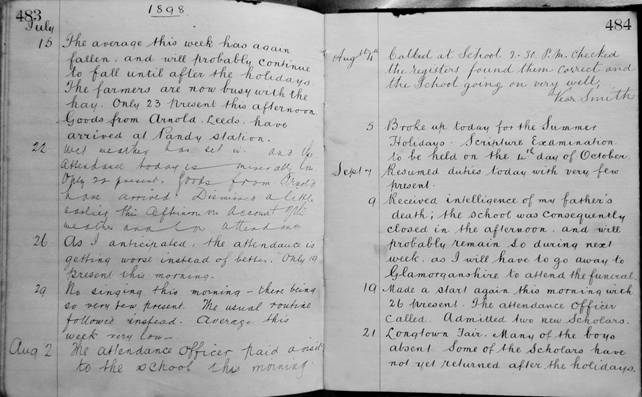 483
1898
July
15 The average this week has again
fallen, and will probably continue
to fall until after the holidays
The farmers are now busy with the
hay. Only 23 present this afternoon
Goods from Arnold, Leeds, have
arrived at Pandy station.
22 Wet weather has set in and the
attendance today is miserably low
Only 22 present. Goods from Arnold
have arrived Dismissed a little
earlier this Afternoon on Account of the
weather and low attendance
26 As I anticipated, the attendance is
getting worse instead of better. Only 19
present this morning.
29 No singing this morning – there being
so very few present. The usual routine
followed instead. Average this
week very low—
Aug 2 The attendance Officer paid a visit
to the school this morning.
484
Augst 4th Called at School 2.30. P.M. Checked
the registers found them correct and
the School going on very well,
Smith
5 Broke up today for the Summer
Holidays. Scripture Examination
to be held on the 12th day of October.
Sept 7 Resumed duties today with very few
present.
9 Received intelligence of my father's
death; the school was consequently
closed in the afternoon. and will
probably remain so during next
week, as I will have to go away to
Glamorganshire to attend the funeral.
19 Made a start again this morning with
26 present. The attendance Officer
called. Admitted two new Scholars.
21 Longtown Fair. Many of the boys
absent. Some of the Scholars have
not yet returned after the holidays.